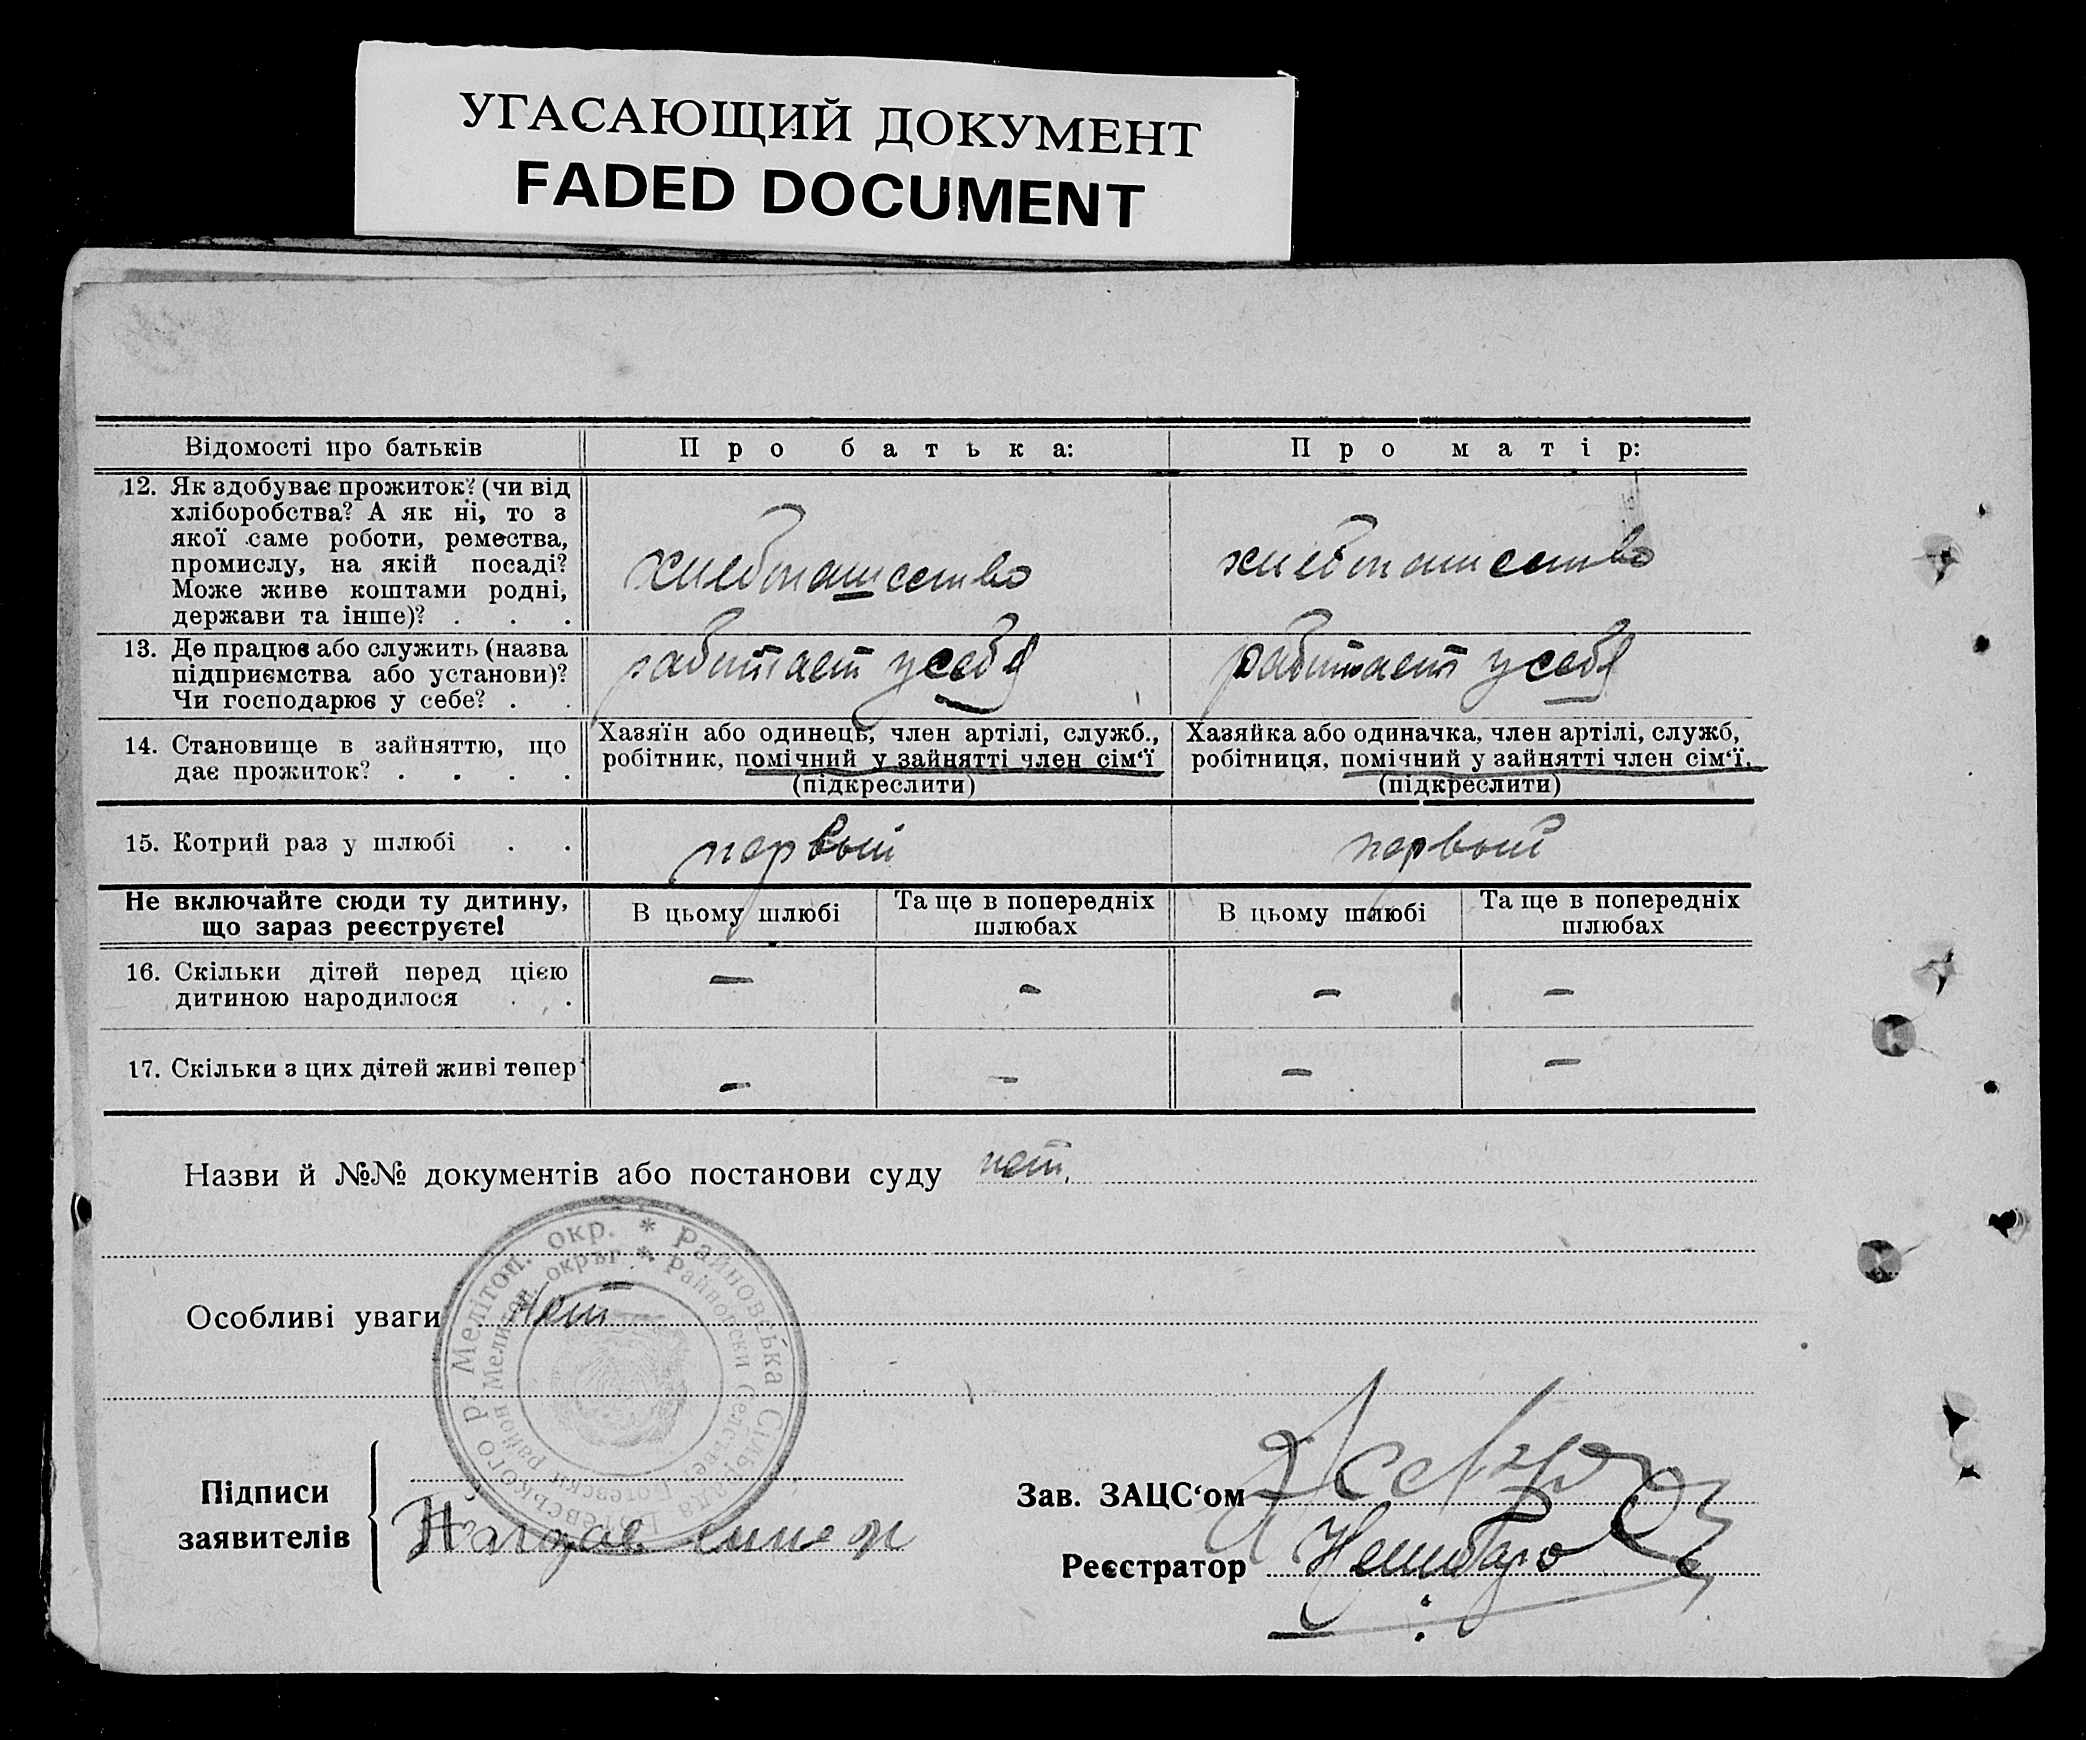 УГАСАЮЩИЙ ДОКУМЕНТ
FADED DOCUMENT
Відомості про батьків
Про батька:
Про матір:
12. Як здобуває прожиток? (чи від
хліборобства? А як ні, то з
якої саме роботи, ремества,
промислу, на якій посаді?
Може живе коштами родні,
держави та інше)? . . .
хлебопашество
хлебопашество
13. Де працює або служить (назва
підприємства або установи)?
Чи господарює у себе? . .
работает у себя
работает у себя
14. Становище в зайняттю, що
дає прожиток? . . . .
Хазяїн або одинець, член артілі, служб.,
робітник, помічний у зайнятті член сім‘ї
(підкреслити)
Хазяйка або одиначка, член артілі, служб,
робітниця, помічний у зайнятті член сім‘ї.
(підкреслити)
15. Котрий раз у шлюбі . .
первый
первый
Не включайте сюди ту дитину,
що зараз реєструєте!
В цьому шлюбі
Та ще в попередніх
шлюбах
В цьому шлюбі
Та ще в попередніх
шлюбах
16. Скільки дітей перед цією
дитиною народилося . .
– – – –
17. Скільки з цих дітей живі тепер
– – – –
Назви й №№ документів або постанови суду нет.
Особливі уваги нет
Мелітоп. окр. * Райновська Сільрада Ботєвського р.
Мелитоп. окръг * Райновски Селсъвет Ботевски район
Підписи
заявителів
Зав. ЗАЦС‘ом
Реєстратор